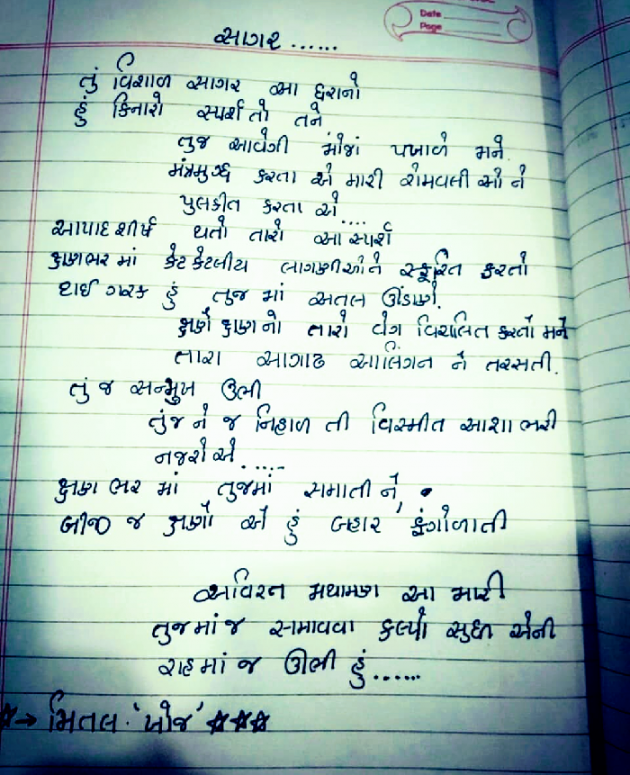 Date
Page
સાગર ......
તું વિશાળ સાગર આ ધરાનો
હું કિનારો સ્પર્શ તો તને
તુજ આવેગી મોજાં પખાળે મને.
મંત્રમુગ્ધ કરતા એ મારી રોમવલી ઓ ને
પુલકીત કરતા એ....
આપાદ શીર્ષ થતો તારો આ સ્પર્શ
ક્ષણભર માં કેટ કેટલીય લાગણીઓને સ્ફૂરિત કરતો
થાઈ ગરક હું તુજ માં અતલ ઊંડાણે.
ક્ષણે ક્ષણ નો તારો વેગ વિચલિત કરતો મને
તારા આગાઢ આલિંગન ને તરસતી.
તું જ સન્મુખ ઉભી
તુંજ ને જ નિહાળ તી વિસ્મીત આશા ભરી
નજરો એ.....
ક્ષણ ભર માં તુજમાં સમાતી ને,
બીજી જ ક્ષણો એ હું બહાર ફંગોળાતી
અવિરત મથામણ આ મારી
તુજમાં જ સમાવવા કલ્પો સુધી એની
રાહ માં જ ઊભી હું......
☆→ મિતલ 'ખોજ' ☆☆☆